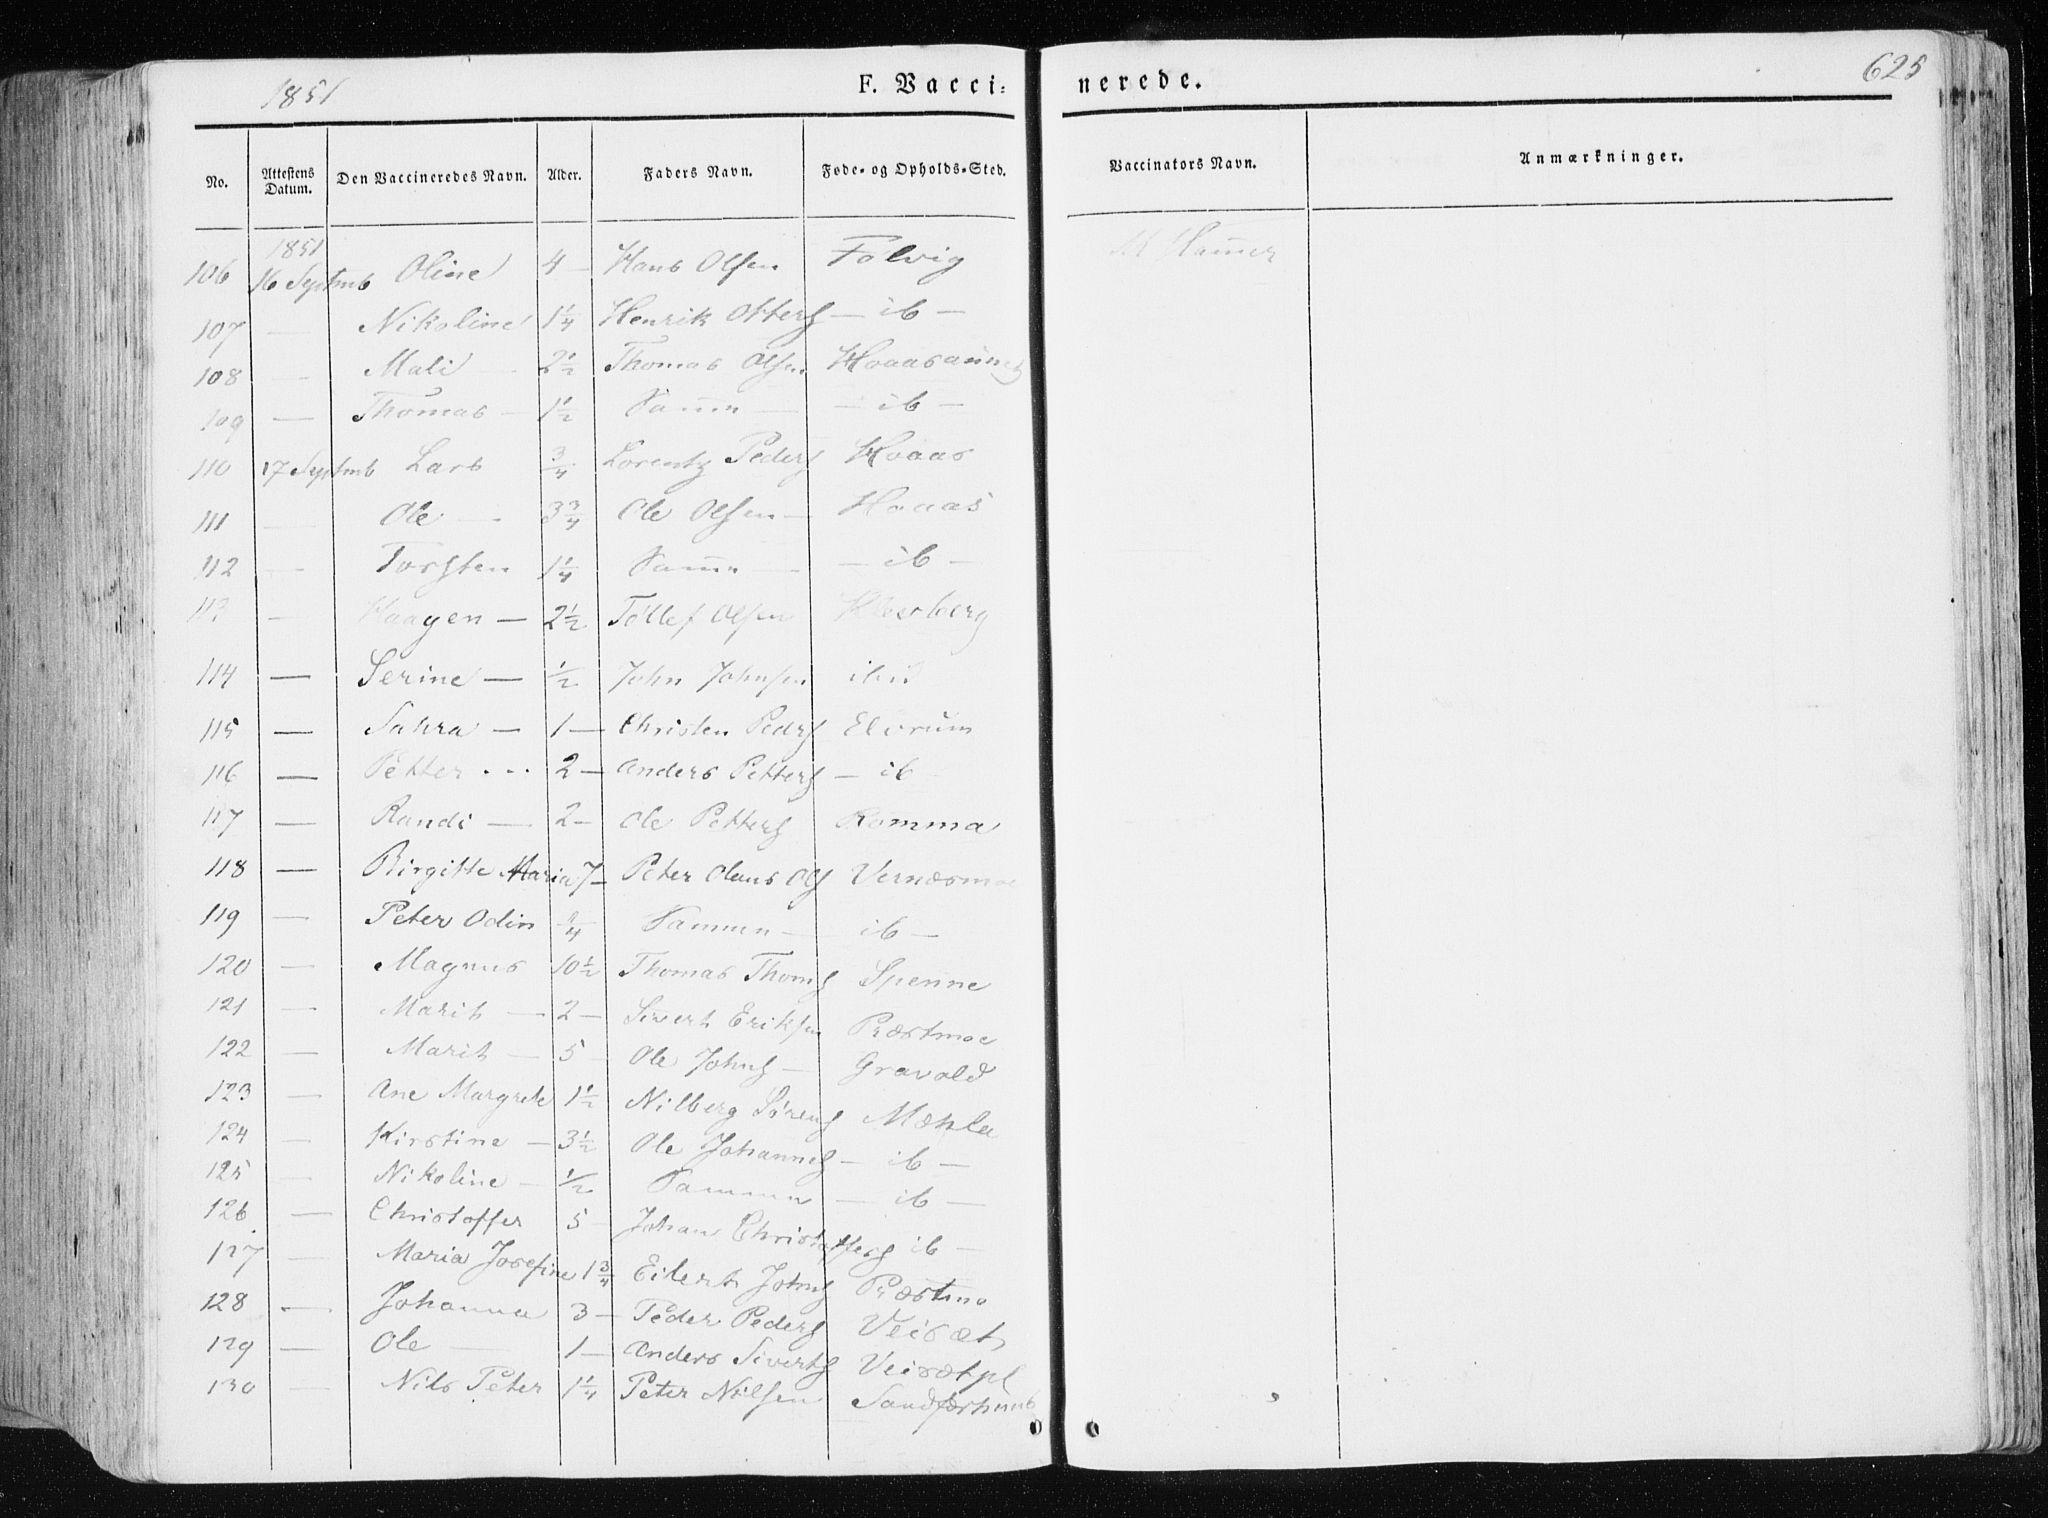 1851
F. Vacci=
nerede.
625
No. Attestens Datum. Den Vaccineredes Navn. Alder. Faders Navn. Føde- og Opholds-Sted. Vaccinators Navn. Anmærkninger.
1851
106 16 Septmb Oline 4 — Hans Olsen Folvig
107 — Nikoline 1¼ Henrik Otters — ib —
108 — Mali 2½ Thomas Olsen
109 — Thomas — 1½ Samm — — ib —
110 17 Septmb Lars ¾ Lorentz Peders Hoaas
111 — Ole — 3¾ Ole Olsen — Hoaas
112 — Torsten 1¼ Samm — — ib —
113 — Haagen — 2½ Tollef Olsen
114 — Serine — ½ John Johnsen ibid
115 — Sahra — 1 — Christen Peders Elvrum
116 — Petter ... 2 — Anders Petters — ib —
117 — Randi — 2 — Ole Petters Romma
118 — Birgitte Maria 7 — Peter Olaus Ols Vernæsmoe
119 — Peter Odin ¾ Sammen — ib —
120 — Magnus 10½ Thomas Thoms Spenne
121 — Marit — 2 — Sivert Eriksen Præstmoe
122 — Marit — 5 — Ole Johns — Gravold
123 — Ane Margrete 1½ Nilberg Sørens Mæhle
124 — Kirstine — 3½ Ole Johannes — ib —
125 — Nikoline — ½ Sammen — ib —
126 — Christoffer 5 — Johan Christoffers ib —
127 — Maria Josefine 1¾ Eilert Johns Præstmo
128 — Johanna 3 — Peder Peders Veisæt
129 — Ole — 1 — Anders Siverts Veisætpl
130 — Nils Peter 1¼ Peter Nilsen